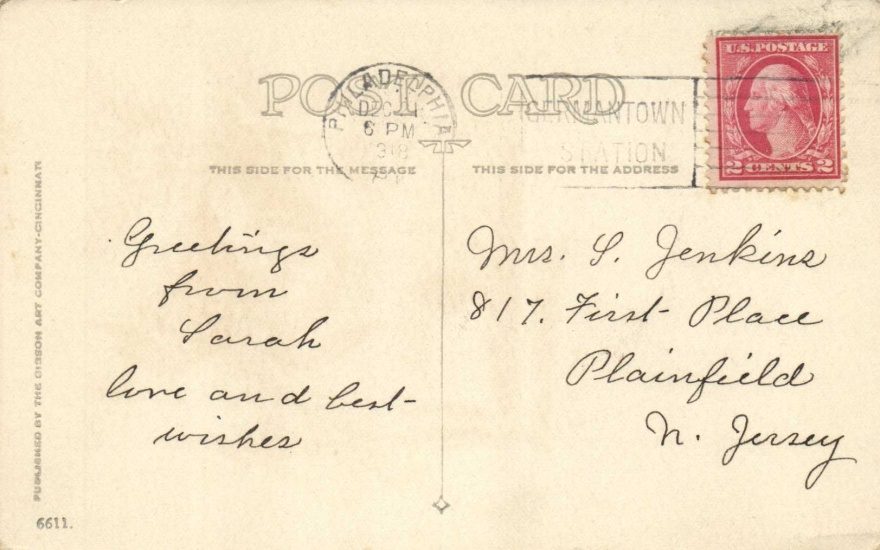 U.S. POSTAGE
2 CENTS 2
POST CARD
PHILADELPHIA
DEC
6 PM
1918
GERMANTOWN
STATION
THIS SIDE FOR THE MESSAGE
THIS SIDE FOR THE ADDRESS
Greetings
from
Sarah
love and best
wishes
Mrs. S. Jenkins
817. First Place
Plainfield
N. Jersey
PUBLISHED BY THE GIBSON ART COMPANY-CINCINNATI
6611.